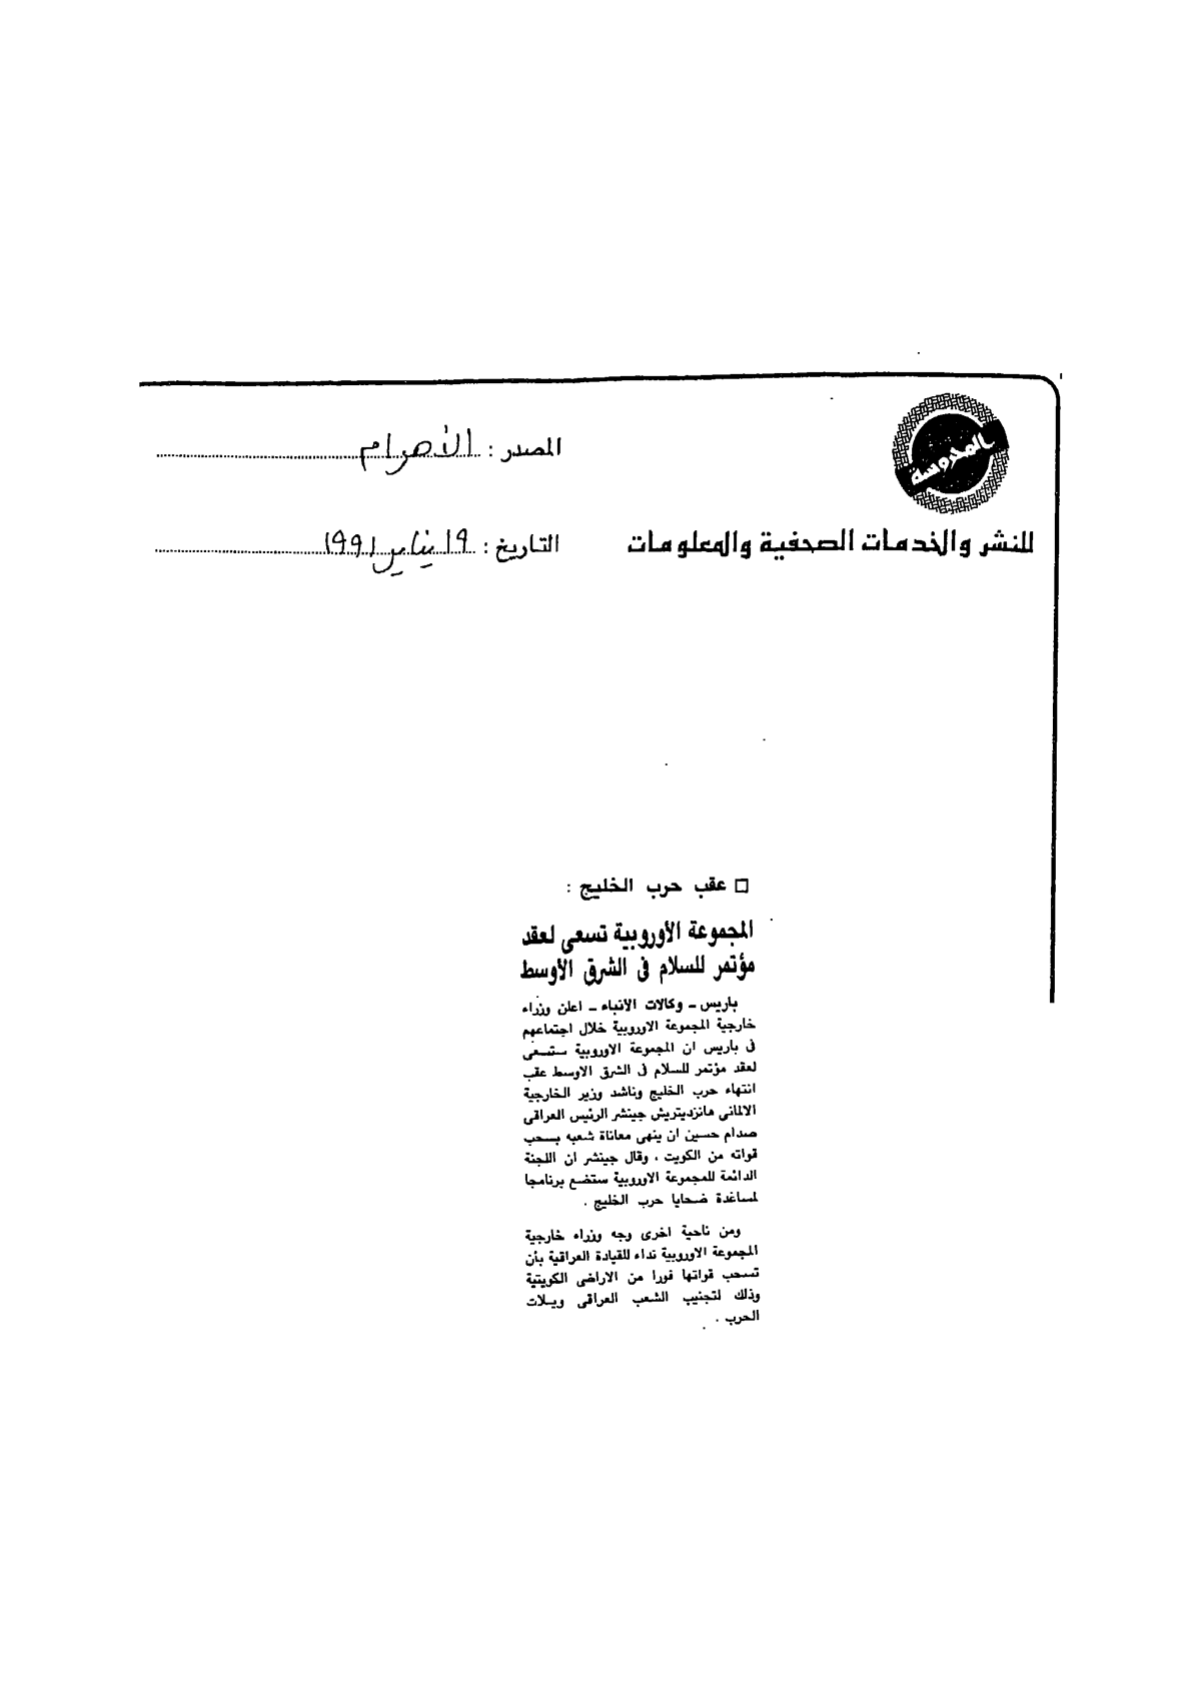 المحروسة
للنشر والخدمات الصحفية والمعلومات
المصدر : الأهرام
التاريخ : ١٩ يناير ١٩٩١
□ عقب حرب الخليج :
المجموعة الأوروبية تسعى لعقد
مؤتمر للسلام فى الشرق الأوسط
باريس ــ وكالات الأنباء ــ اعلن وزراء
خارجية المجموعة الاوروبية خلال اجتماعهم
فى باريس ان المجموعة الاوروبية ستسعى
لعقد مؤتمر للسلام فى الشرق الاوسط عقب
انتهاء حرب الخليج وناشد وزير الخارجية
الالمانى هانزديتريش جينشر الرئيس العراقى
صدام حسين ان ينهى معاناة شعبه بسحب
قواته من الكويت ، وقال جينشر ان اللجنة
الدائمة للمجموعة الاوروبية ستضع برنامجا
لمساعدة ضحايا حرب الخليج .
ومن ناحية اخرى وجه وزراء خارجية
المجموعة الاوروبية نداء للقيادة العراقية بأن
تسحب قواتها فورا من الاراضى الكويتية
وذلك لتجنيب الشعب العراقى ويلات
الحرب .